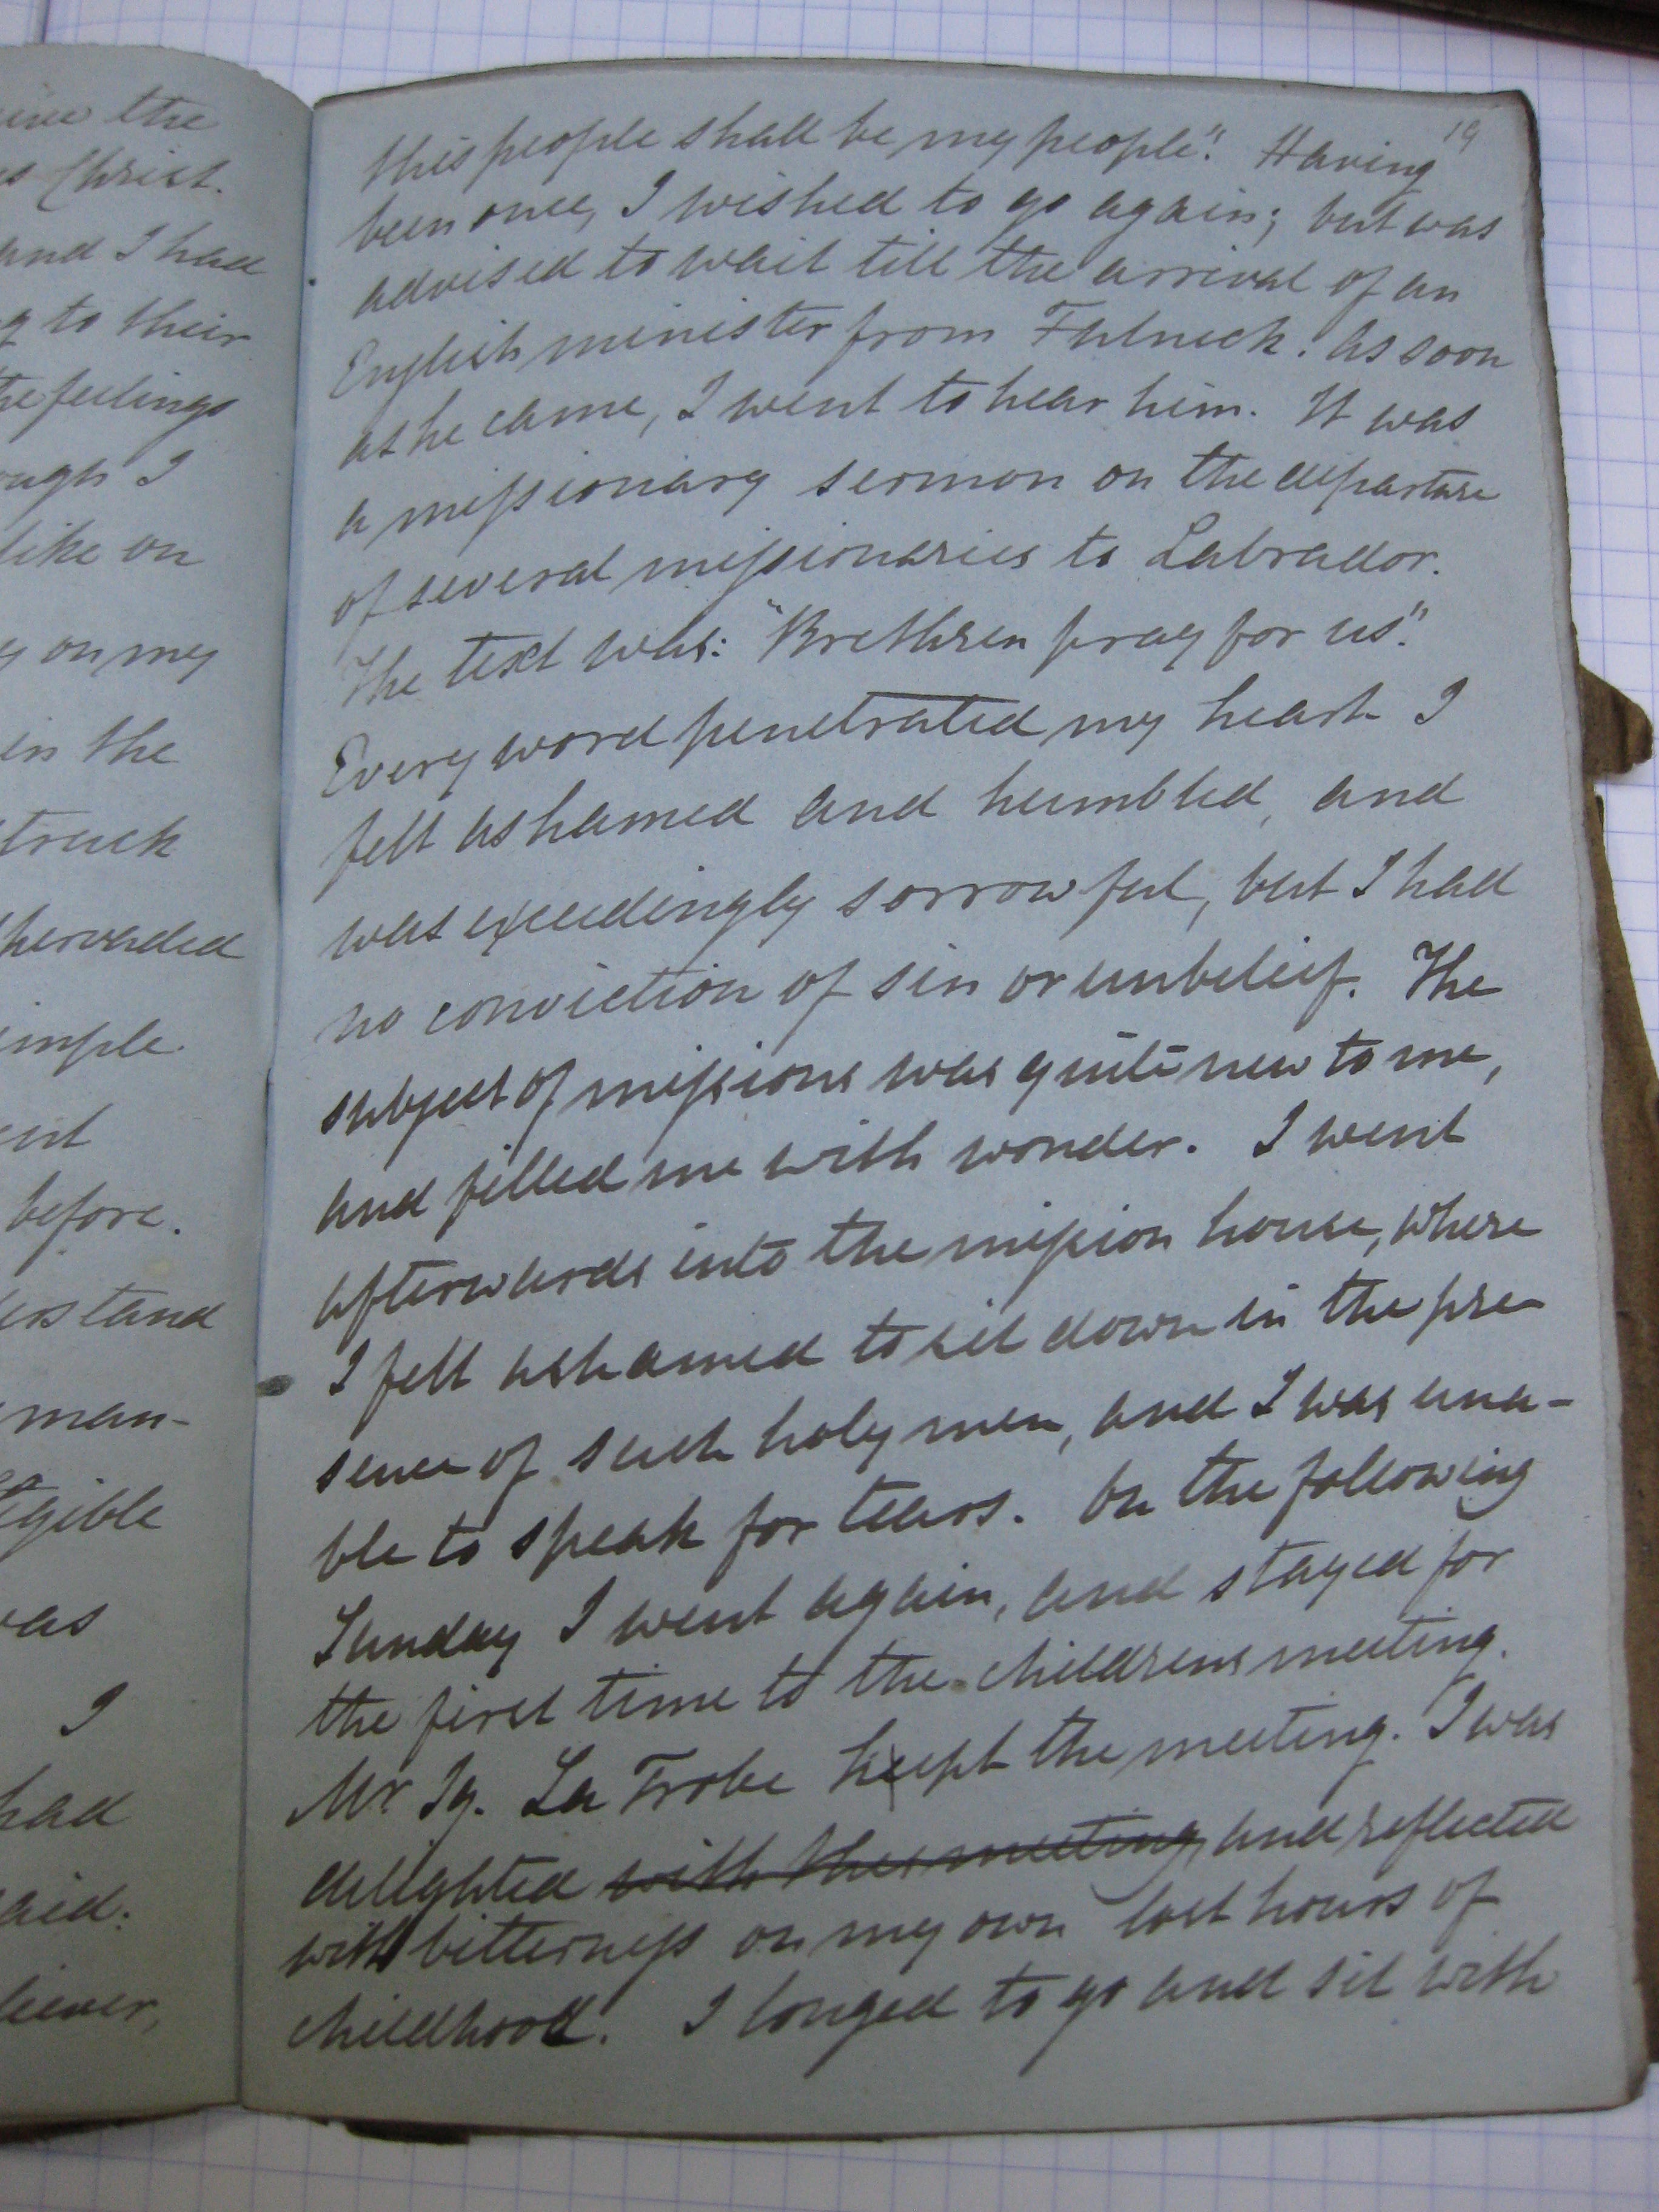 ine the
s Christ.
and I had
g to their
he feelings
ough I
like on
g on my
in the
truck
pervaded
imple
ent
before.
erstand
man-
gible
was
I
had
aid:
liever,
19
this people shall be my people". Having
been once, I wished to go again; but was
advised to wait till the arrival of an
English minister from Fulneck. As soon
as he came, I went to hear him. It was
a missionary sermon on the departure
of several missionaries to Labrador.
The text was: "Brethren pray for us".
Every word penetrated my heart I
felt ashamed and humbled, and
was exceedingly sorrowful, but I had
no conviction of sin or unbelief. The
subject of missions was quite new to me,
and filled me with wonder. I went
afterwards into the mission house, where
I felt ashamed to sit down in the pre
sence of such holy men, and I was una-
ble to speak for tears. On the following
Sunday I went again, and stayed for
the first time to the childrens meeting.
Mr. Ig. La Trobe kept the meeting. I was
delighted with the meeting, and reflected
with bitterness on my own lost hours of
childhood. I longed to go and sit with